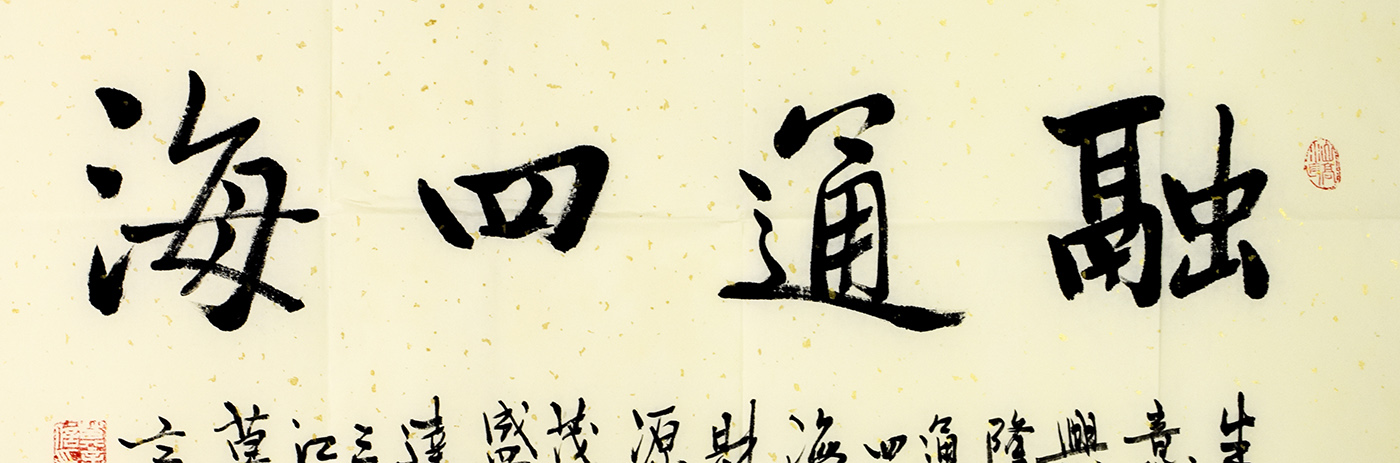 融通四海
生意興隆通四海財源茂盛達三江